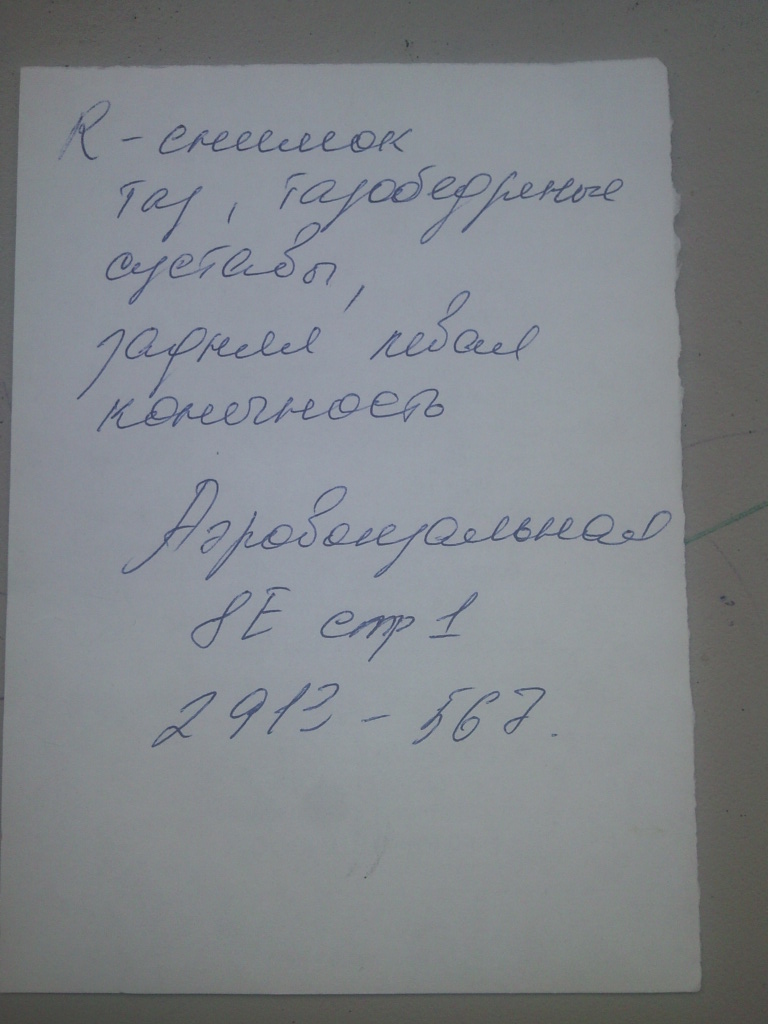 R - снимок
таз, тазобедреные
суставы,
задняя левая
конечность
Аэровокзальная
8Е стр 1
2913 - 567.